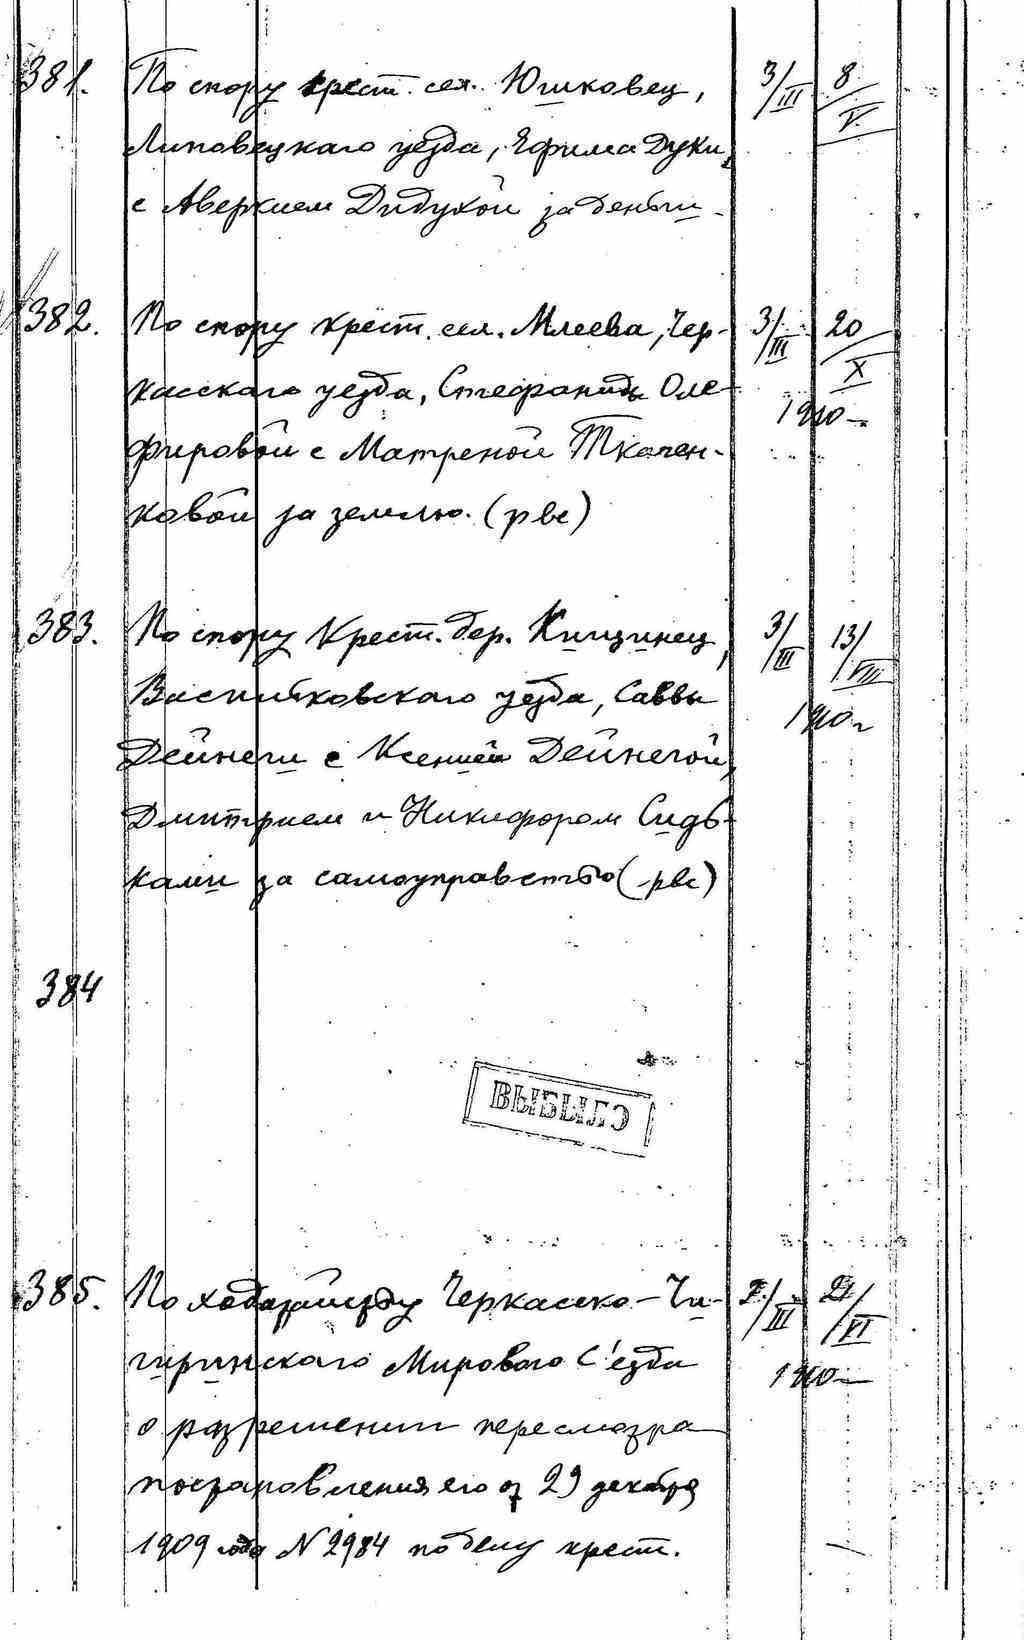 381. По спору крест. сел. Юшковец, 3/III 8/V.
Липовецкаго уезда, Ефима Дуки,
с Аверкием Дидухой за деньги
382. По спору крест. сел. Млеева, Чер- 3/III 20/X
касскаго уезда, Стефаниды Оле- 1910
фировой с Матреной Ткачен-
ковой за землю. (рвс)
383. По спору Крест. дер. Кищинец, 3/III 13/VIII
Васильковскаго уезда, Саввы 1910г
Дейнеги с Ксенией Дейнегой,
Дмитрием и Никифором Сидь-
ками за самоуправство (рвс)
384
ВЫБЫЛО
385. По ходатайству Черкасско-Чи- /III 21/VI
гиринскаго Мирового С'езда 1910
о разрешении пересмотра
постановления его от 29 декабря
1909 года N 2984 по делу крест.